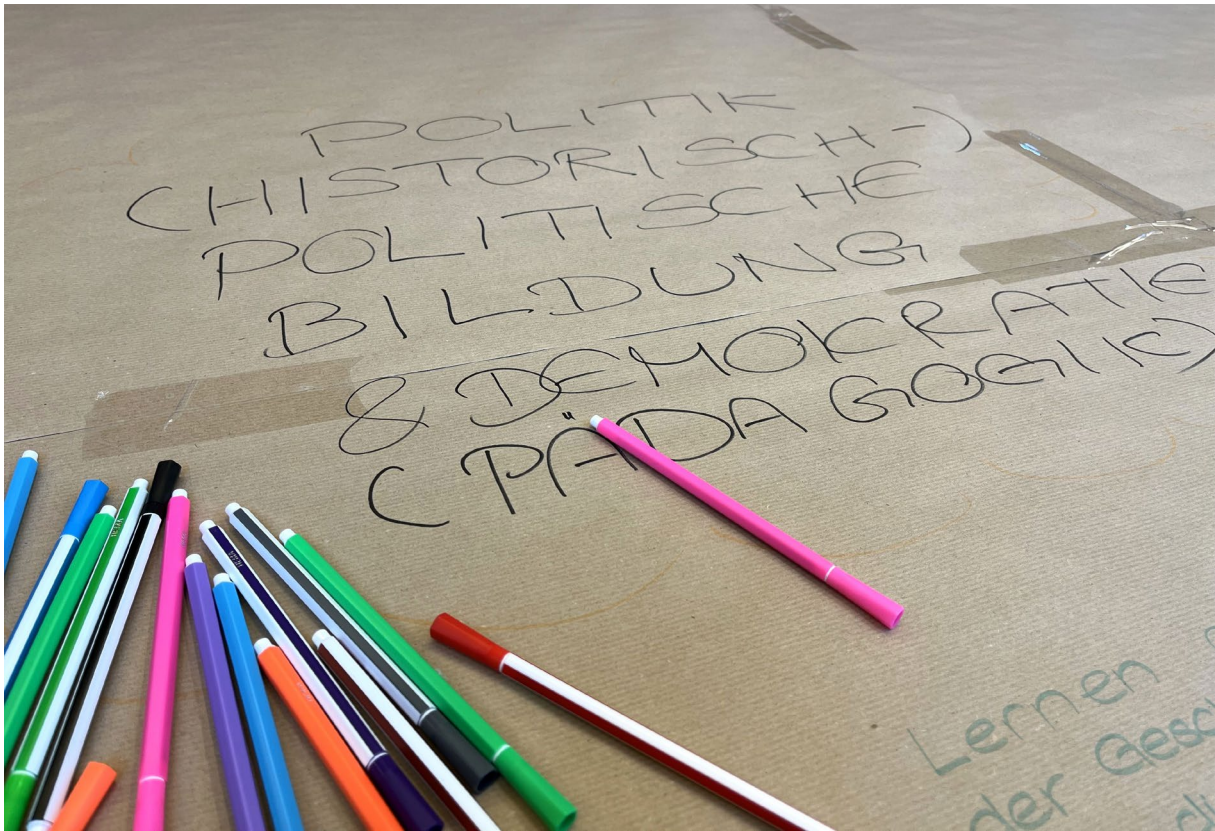 POLITIK
(HISTORISCH-)
POLITISCHE
BILDUNG
& DEMOKRATIE
(PÄDAGOGIK)
Lernen
der